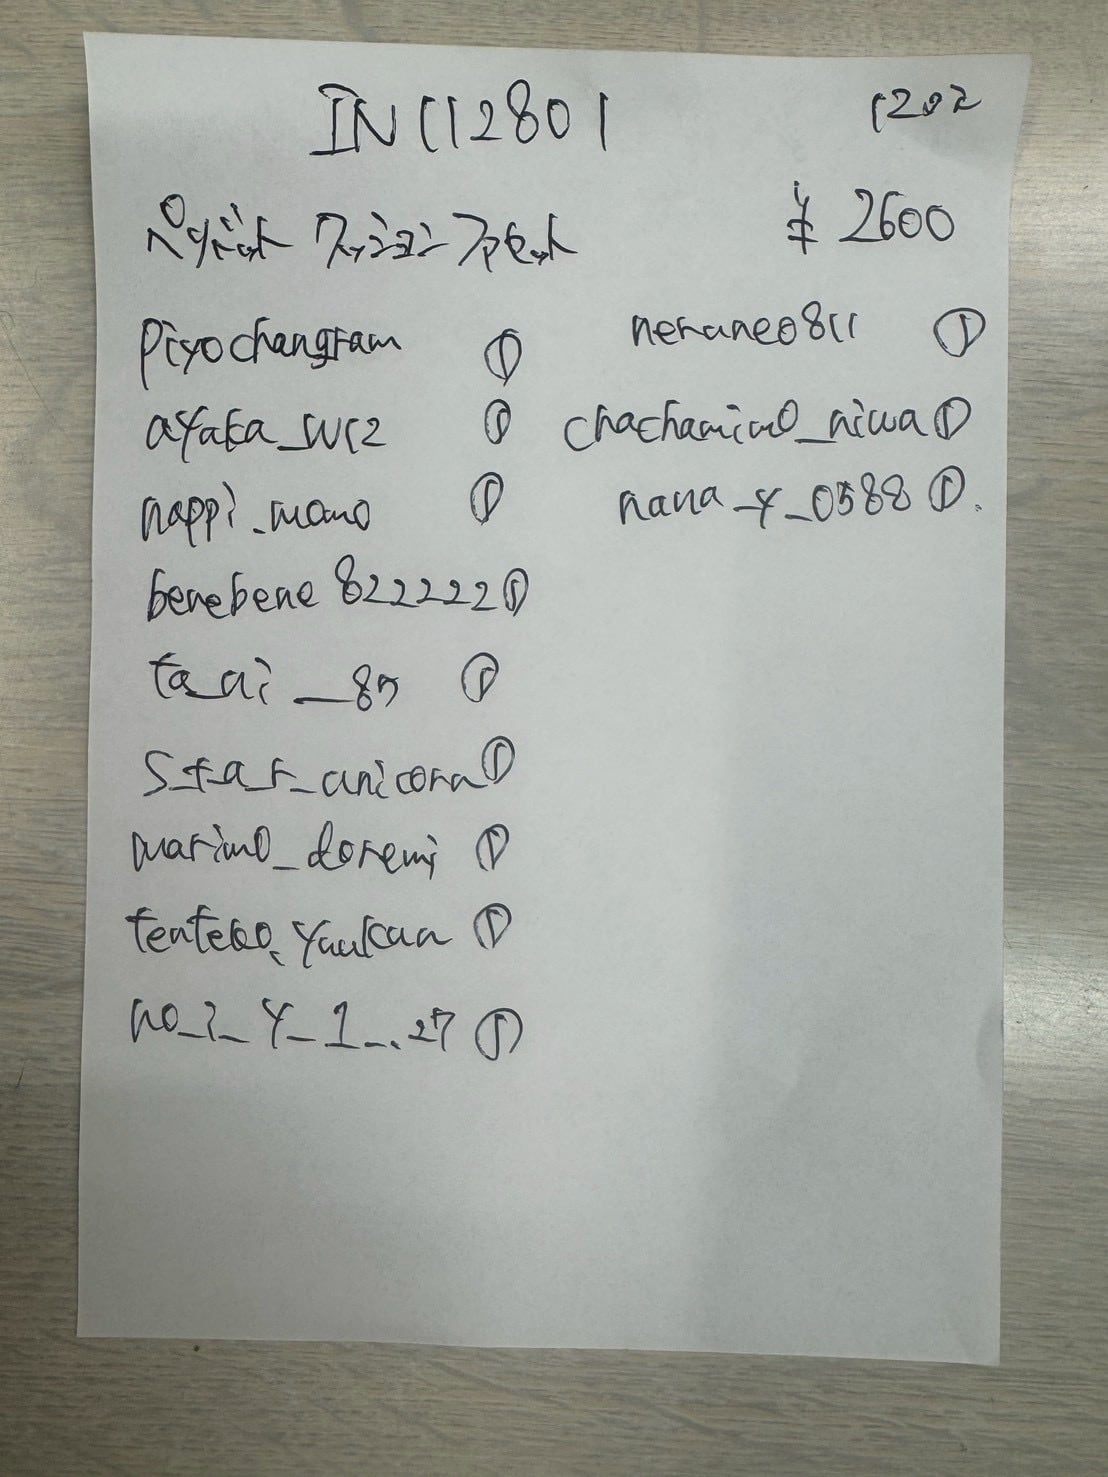 IN112801
1202
ペリペット クッションファセット
¥ 2600
piyochangram ①
ayaka_wc2 ①
nappi_momo ①
benebene822222 ①
ta_ai__87 ①
s_t_a_r_unicorn ①
marimo_doremi ①
tenteko_yuukun ①
no_i_y_1_.27 ①
neruneo811 ①
chachamimo_niwa ①
nana_y_0588 ①